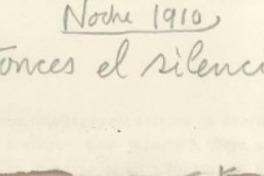 Noche 1910
onces el silenci